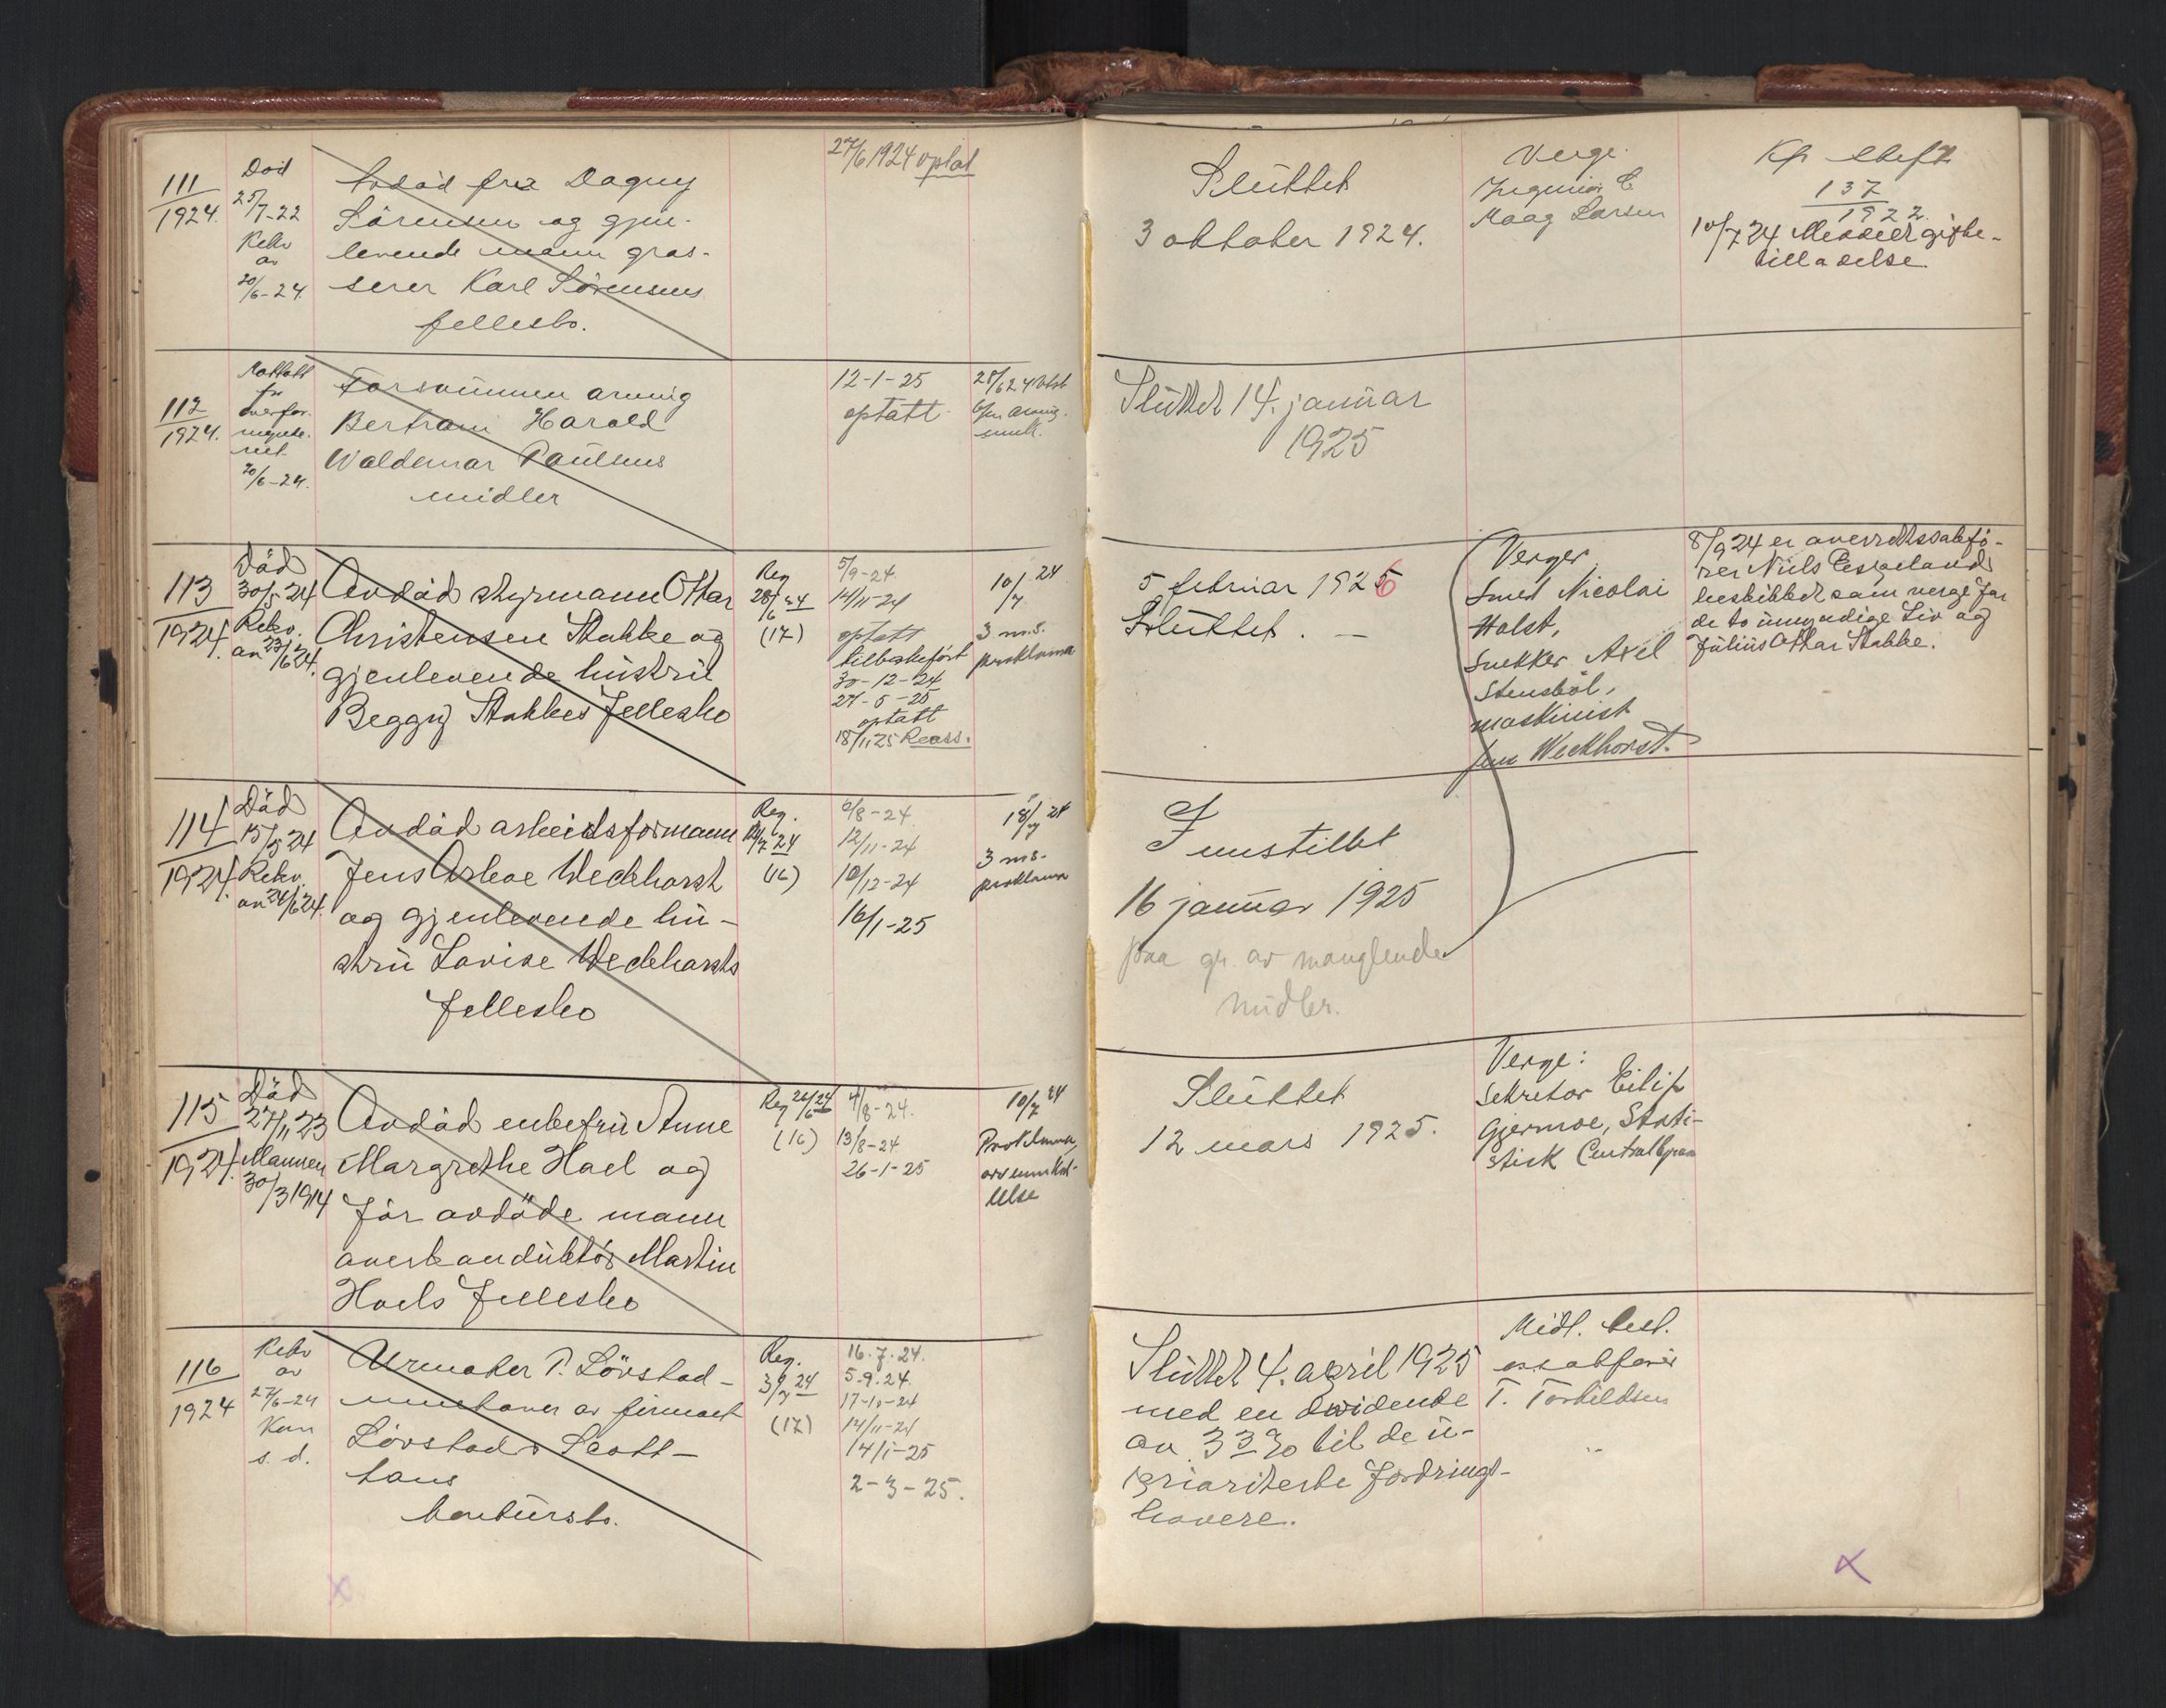 111
1924.
Död
25/7-22
Rekv
av
20/6-24.
Avdöd frue Dagny
Sörensen og gjen-
levende mann gros-
serer Karl Sörensens
fellesbo.
27/6 1924 optat
Sluttet
3 oktober 1924.
Verge.
Ingeniör C.
Haag Larsen
Kfr skifte
137
1922.
10/7 24 Meddelt gifte-
tilladelse
112
1924.
Mottatt
fra
overfor-
20/6-24.
Forsvunnen arving
Bertram Harald
Waldemar Paulsens
midler
12-1-25
optatt
Sluttet 14. januar
1925
113
1924.
Död
30/5 24
Rekv.
av 23/6 24.
Avdöd styrmann Ottar
Christensen Stabke og
gjenlevende hustru
Beggy Stabkes fellesbo
Reg
28/6 24
(17)
5/9-24
14/11-24
optatt
tilbakefört
30-12-24
27-5-25
optatt
18/11 25 Reass.
10/7 24
3 m.s.
proklama
5 februar 1926
Sluttet. —
Verger,
Smed Nicolai
Holst,
Snekker Axel
Stensböl,
maskinist
Weckhorst.
8/9 24 er overrettssakfö-
rer Niels Eskeland
beskikket som verge for
de to umyndige Liv og
Julius Ottar Stabke.
114
1924.
Död
15/5 24
Rekv.
av 24/6 24.
Avdöd arbeidsformann
Jens Asloe Weckhorst
og gjenlevende hu-
stru Lovise Weckhorsts
fellesbo
Reg.
24
(16)
6/8-24.
12/11-24
10/12-24
16/1-25
18/7 24
3 m.s.
proklama
Innstillet
16 januar 1925
paa gr. av manglende
midler.
115
1924.
Död
27/11 23
Mannen
30/3 1914
Avdöd enkefru Anne
Margrethe Hoel og
för avdöde mann
overkonduktör Martin
Hoels fellesbo
Reg 26/6 24
(16)
4/8-24.
13/8-24
26-1-25
10/7 24
Proklama,
Sluttet
12 mars 1925.
Verge:
Sekretær Eilif
Gjermoe, Stati-
stisk Centralbyraa
116
1924
Rekv
av
27/6-24
Kun
s. d.
Urmaker P. Lövstad-
innehaver av firmaet
Lövstad & Scott-
hans
konkursbo.
Reg.
3/7 24
(17)
16.7.24.
5.9.24.
17-10-24
14/11-24
14/1-25
2-3-25.
Sluttet 4. april 1925
med en dividende
av 3 % til de u-
prioriterte fordrings-
havere.
Midl. best.
o.r.sakförer
T. Torkildsen
x
x